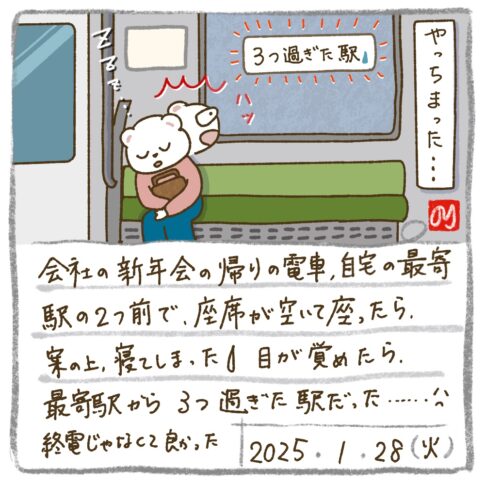 やっちまった…
3つ過ぎた駅
ハッ
ZZZ
会社の新年会の帰りの電車、自宅の最寄
駅の2つ前で、座席が空いて座ったら、
案の上、寝てしまった 目が覚めたら、
最寄駅から 3つ過ぎた駅だった……
終電じゃなくて良かった
2025.1.28(火)